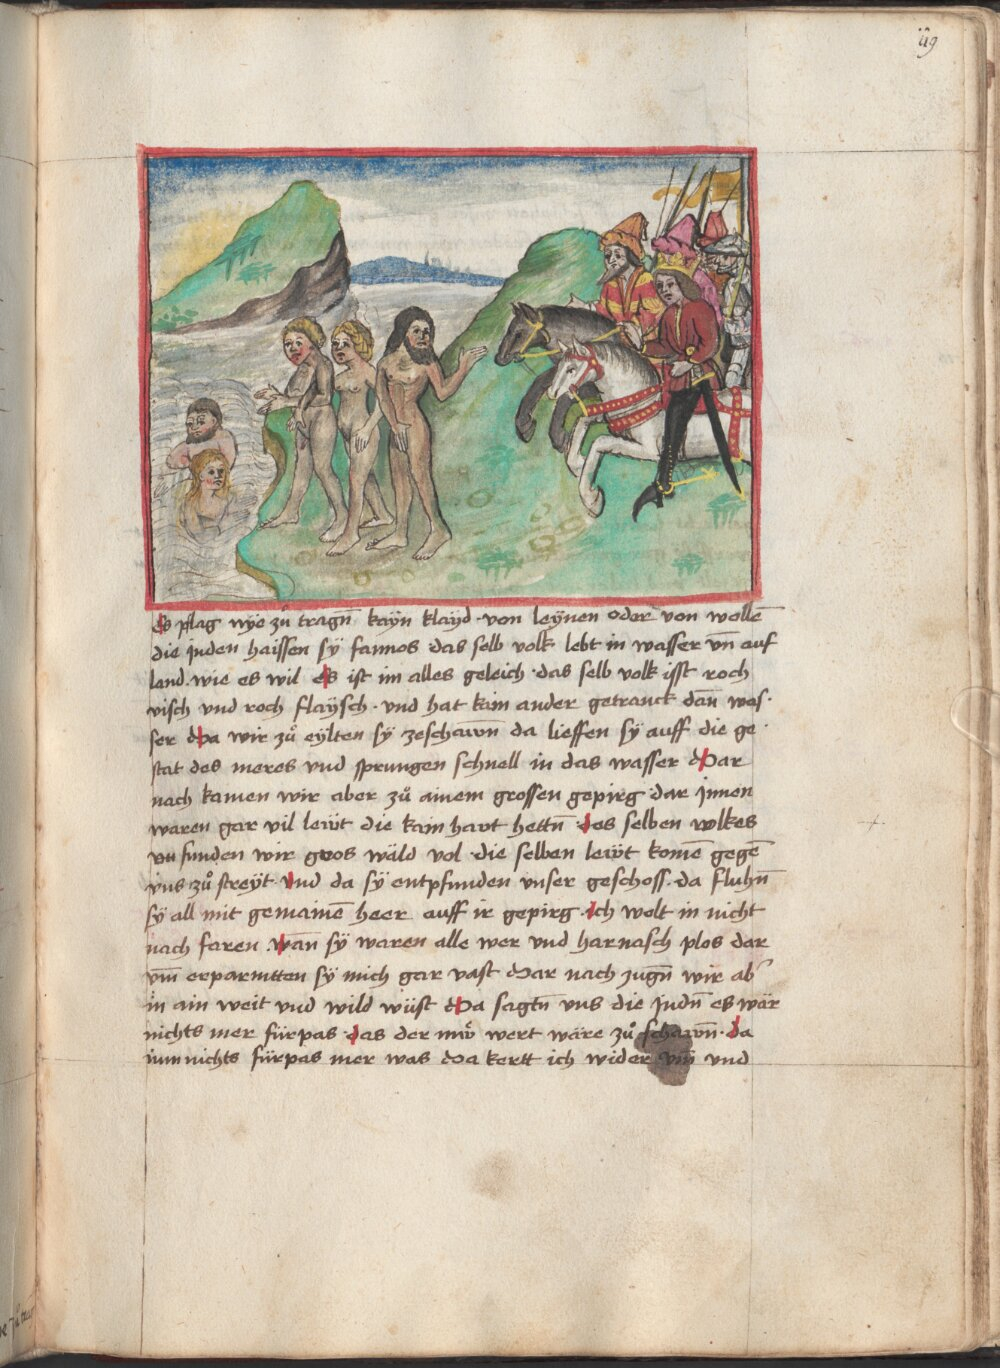 119
Es pflag nye zů tragn̄ kayn klayd · von leynen oder von wollē
die juden haissen sÿ fannos das selb volk lebt in wasser vn̄ auf
land · wie es wil es ist im alles geleich · das selb volk isst roch
visch vnd roch flaysch · vnd hat kain ander getranck dan̄ was ·
ser Da wir zů eylten sÿ zeschawn̄ da lieffen sÿ auff die ge ·
stat des meres vnd sprungen schnell in das wasser Dar
nach kamen wir aber zů ainem grossen gepirg dar Innen
waren gar vil lewt die kain hawt hettn̄ des selben volkes
funden wir gros wäld vol · die selben lewt komē gegē
vns zů streyt Vnd da sÿ entpfunden vnser geschoss · da fluhn̄
sÿ all mit gemainē heer auff ir gepirg · Ich wolt in nicht
nach faren · wan̄ sÿ waren alle wer vnd harnasch plos dar
vm̄ erparmtten sÿ mich gar vast Dar nach zugn̄ wir ab
in ain weit vnd wild wüst Da sagtn̄ vns die Judn̄ es wär
nichts mer fürpas das der wert wäre zů schawn̄ · da
nun nichts fürpas mer was Da kertt ich wider vm̄ vnd